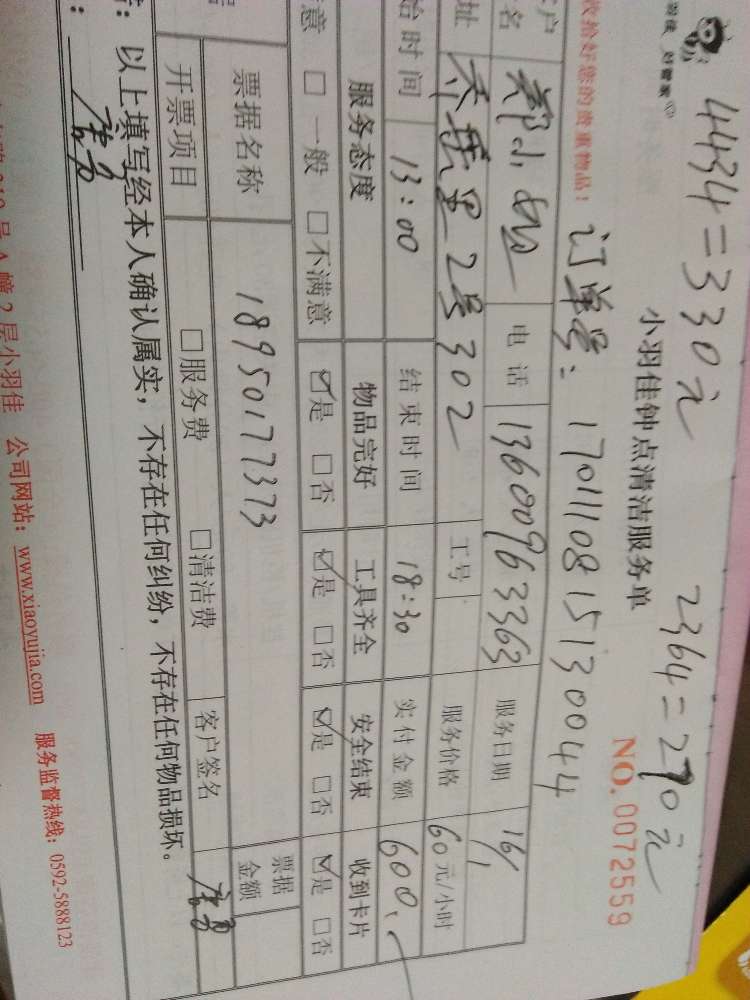 4434=330元 2364=270元
好管家
小羽佳钟点清洁服务单
NO.0072559
收拾好您的贵重物品: 订单号: 1701110815130044
电话 13600963363 服务日期 16/1
2号302 工号 服务价格 60元/小时
始时间 13:00 结束时间 18:30 实付金额 600.
服务态度 物品完好 工具齐全 安全结束 收到卡片
意 □一般 □不满意 ☑是 □否 ☑是 □否 ☑是 □否 ☑是 □否
票据名称 18950177373 票据金额
开票项目 □服务费 □清洁费 客户签名
以上填写经本人确认属实，不存在任何纠纷，不存在任何物品损坏。
号A幢2层小羽佳 公司网站：www.xiaoyujia.com 服务监督热线：0592-5888123